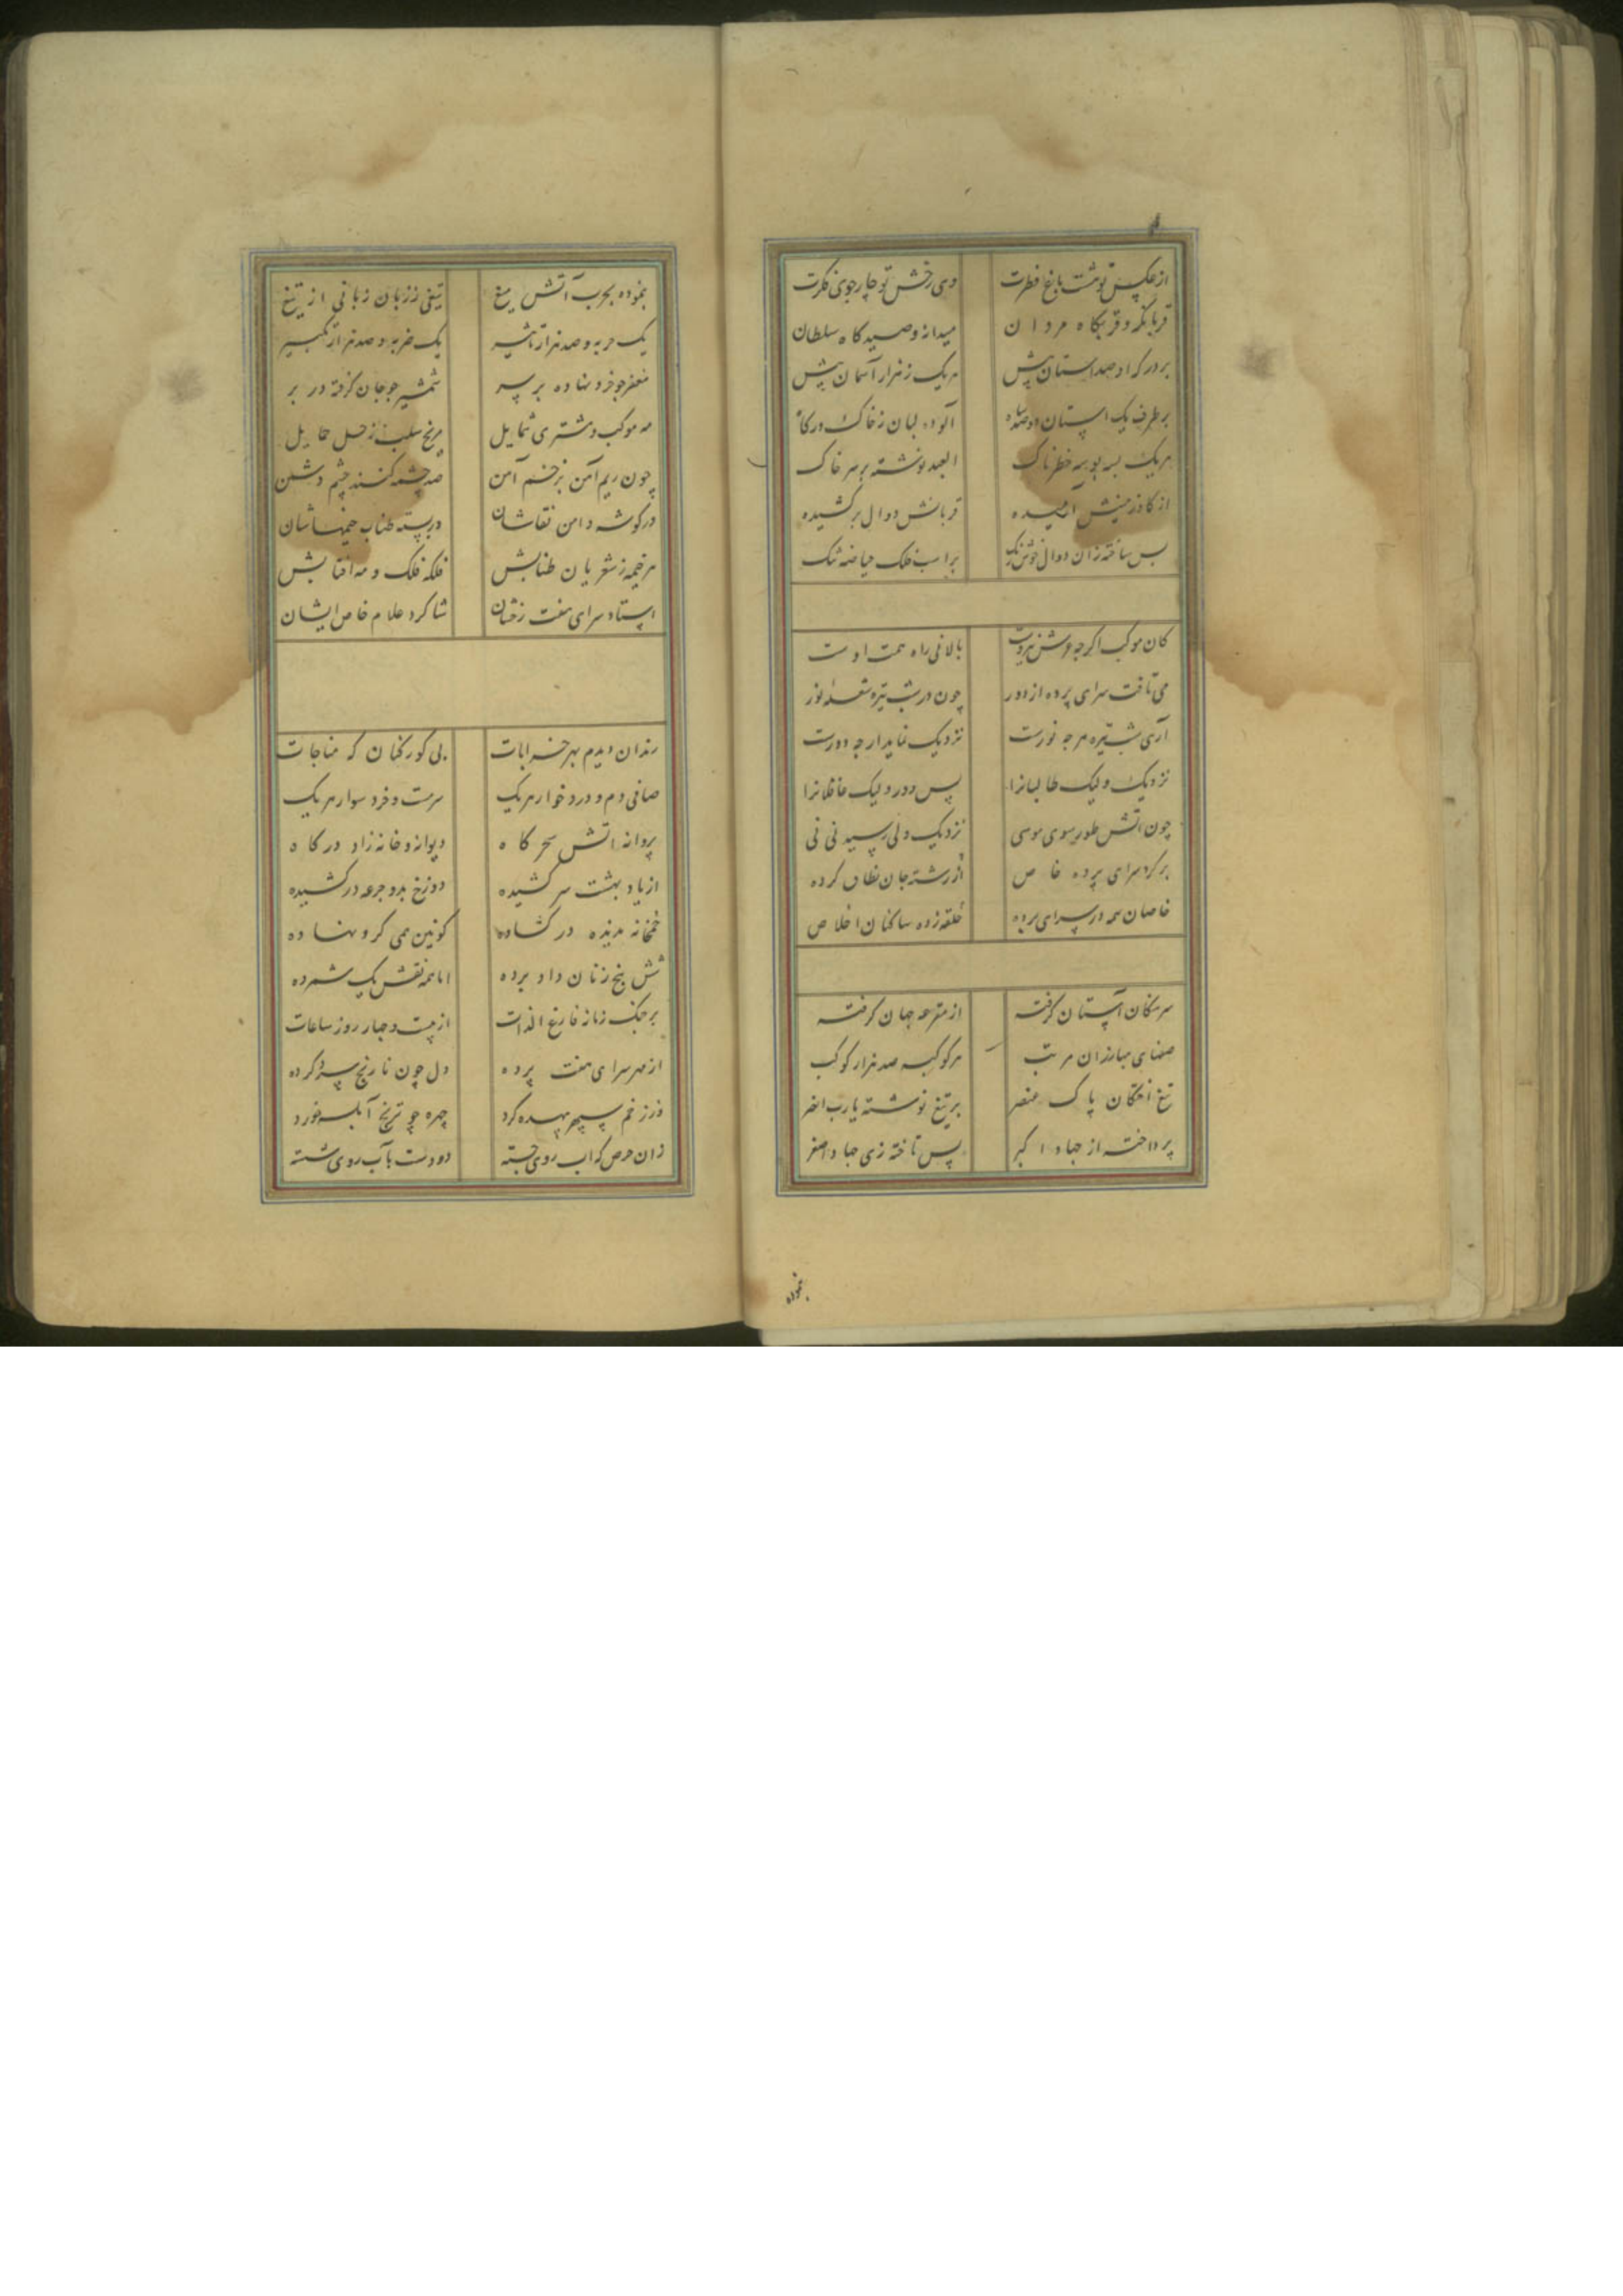 از عکس تو هشت باغ فطرت وی رخش تو چار جوی فکرت
قربانگه و قربگاه مردان میدانه و صیدگاه سلطان
بر درگه او صد آستان پیش هر یک ز هزار آسمان پیش
بر طرف یک آستان دو صد آلوده لبان ز خاک درگاه
هر یک بسه بوسه خطرناک العبد نوشته بر سر خاک
از کاذر میده قربانش دوال برکشیده
بس ساخته زان دوال خوش رنگ بر اسب فلک حیاصه تنک
کان موکب اگرچه عرش بالائی راه همت اوست
می تافت سرای پرده از دور چون در شب تیره شعله نور
آری شب تیره هرجه نورست نزدیک نماید ارجه دورست
نزدیک ولیک طالبانرا پس دور ولیک غافلانرا
چون آتش طور سوی موسی نزدیک ولی رسید نی نی
بر کرد سرای پرده خاص از رشته جان نطاق کرده
خاصان همه در سرای پرده حلقه زده ساکنان اخلاص
سرهنگان آستان گرفته از مقرعه جهان گرفته
صفهای مبارزان مرتب هر کوکبه صد هزار کوکب
تیغ پاک عنصر بر تیغ نوشته یارب انصر
پرداخته از جهاد اکبر پس تاخته زی جهاد اصغر
بنموده
بنموده بحرب آتش میغ تیغی ز زبان زبانی از تیغ
یک حربه و صد هزار تاثیر یک ضربه و صد هزار تکبیر
مغفر جو خرد نهاده بر سر شمشیر جو جان گرفته در بر
مه موکب و مشتری شمایل مریخ سلب زحل حمایل
چون ریم آهن بزخم آهن صد چشمه کنند چشم دشمن
در گوشه دامن بقاشان دربسته طناب خیمهاشان
هر خیمه ز شعریان طنابش فلکه فلک و مه آفتابش
استاد سرای هفت زخشان شاکرد غلام خاص ایشان
رندان دیدم بهر خرابات بی کورکنان که مناجات
صافی دم و درد خوار هر یک سرمست و فرد سوار هر یک
پروانه آتش سحرگاه دیوانه و خانه زاد درگاه
از یاد بهشت سر کشیده دوزخ بدو جرعه درکشیده
خمخانه در گشاده کونین بمی گرو نهاده
شش پنج زنان داو برده اما همه نقش یک شمرده
بر جنک زمانه فارغ الذات از بیست و جهار روز ساعات
از مهر سرای هفت پرده دل چون نارنج سرد کرده
وز زخم سپهر بهده کرد چهره چو ترنج آبله خورد
زان حرص که آب روی جسته دو دست بآب روی شسته